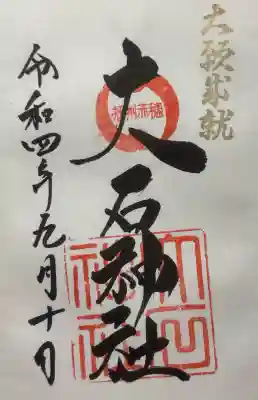 大願成就
播州赤穂
大石神社
令和四年九月十日